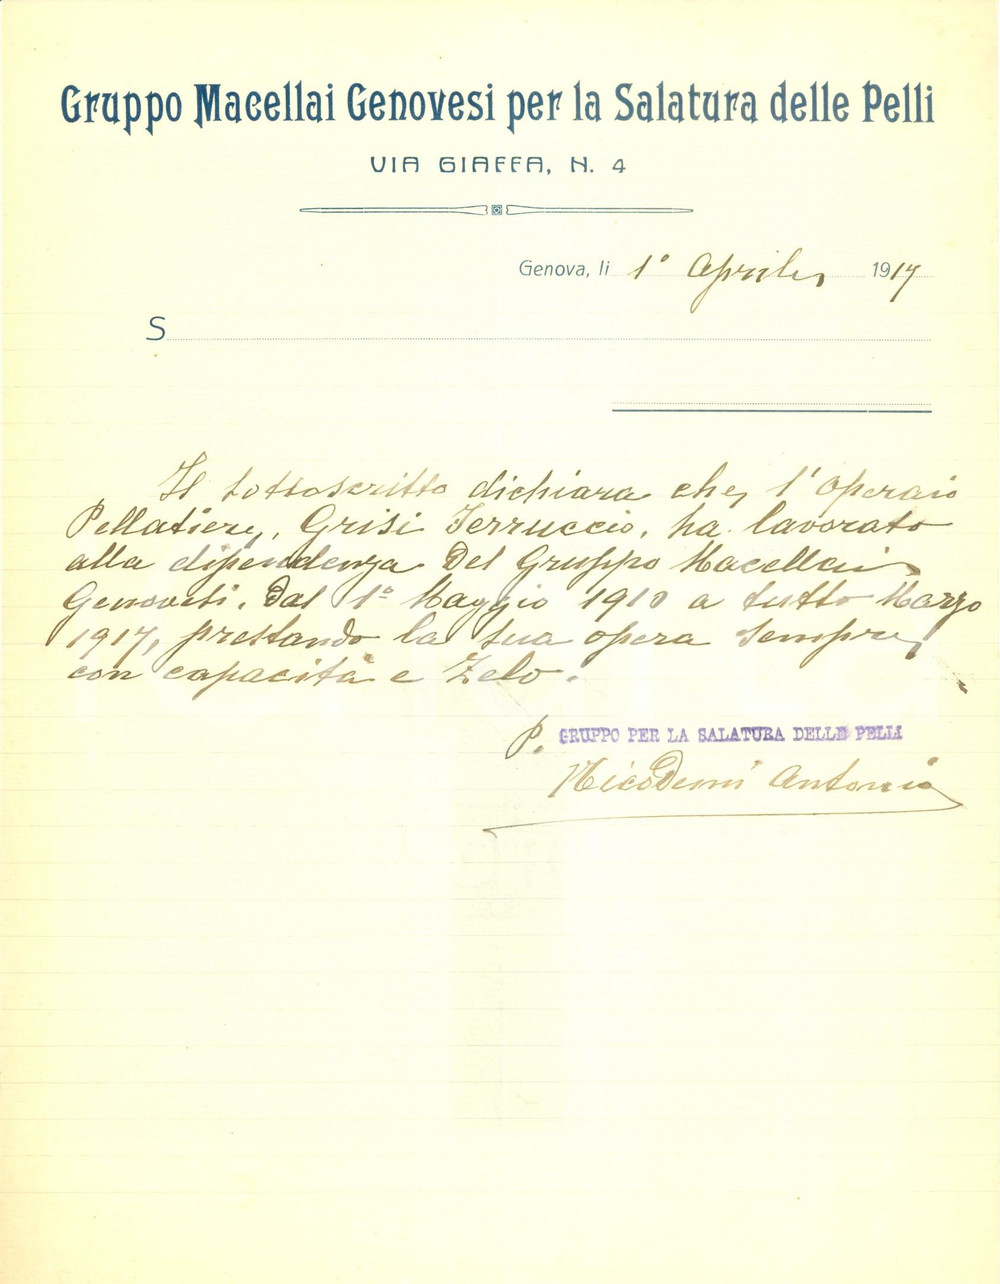 Gruppo Macellai Genovesi per la Salatura delle Pelli
VIA GIAFFA, N. 4
Genova, li 1° Aprile 1917
S
Il sottoscritto dichiara che l'operaio
Pellattiere, Grisi Ferruccio, ha lavorato
alla dipendenza Del Gruppo Macellai
Genovesi. Dal 1° Maggio 1910 a tutto Marzo
1917, prestando la sua opera sempre
con capacità e Zelo.
P. GRUPPO PER LA SALATURA DELLE PELLI
Nicodemi Antonio